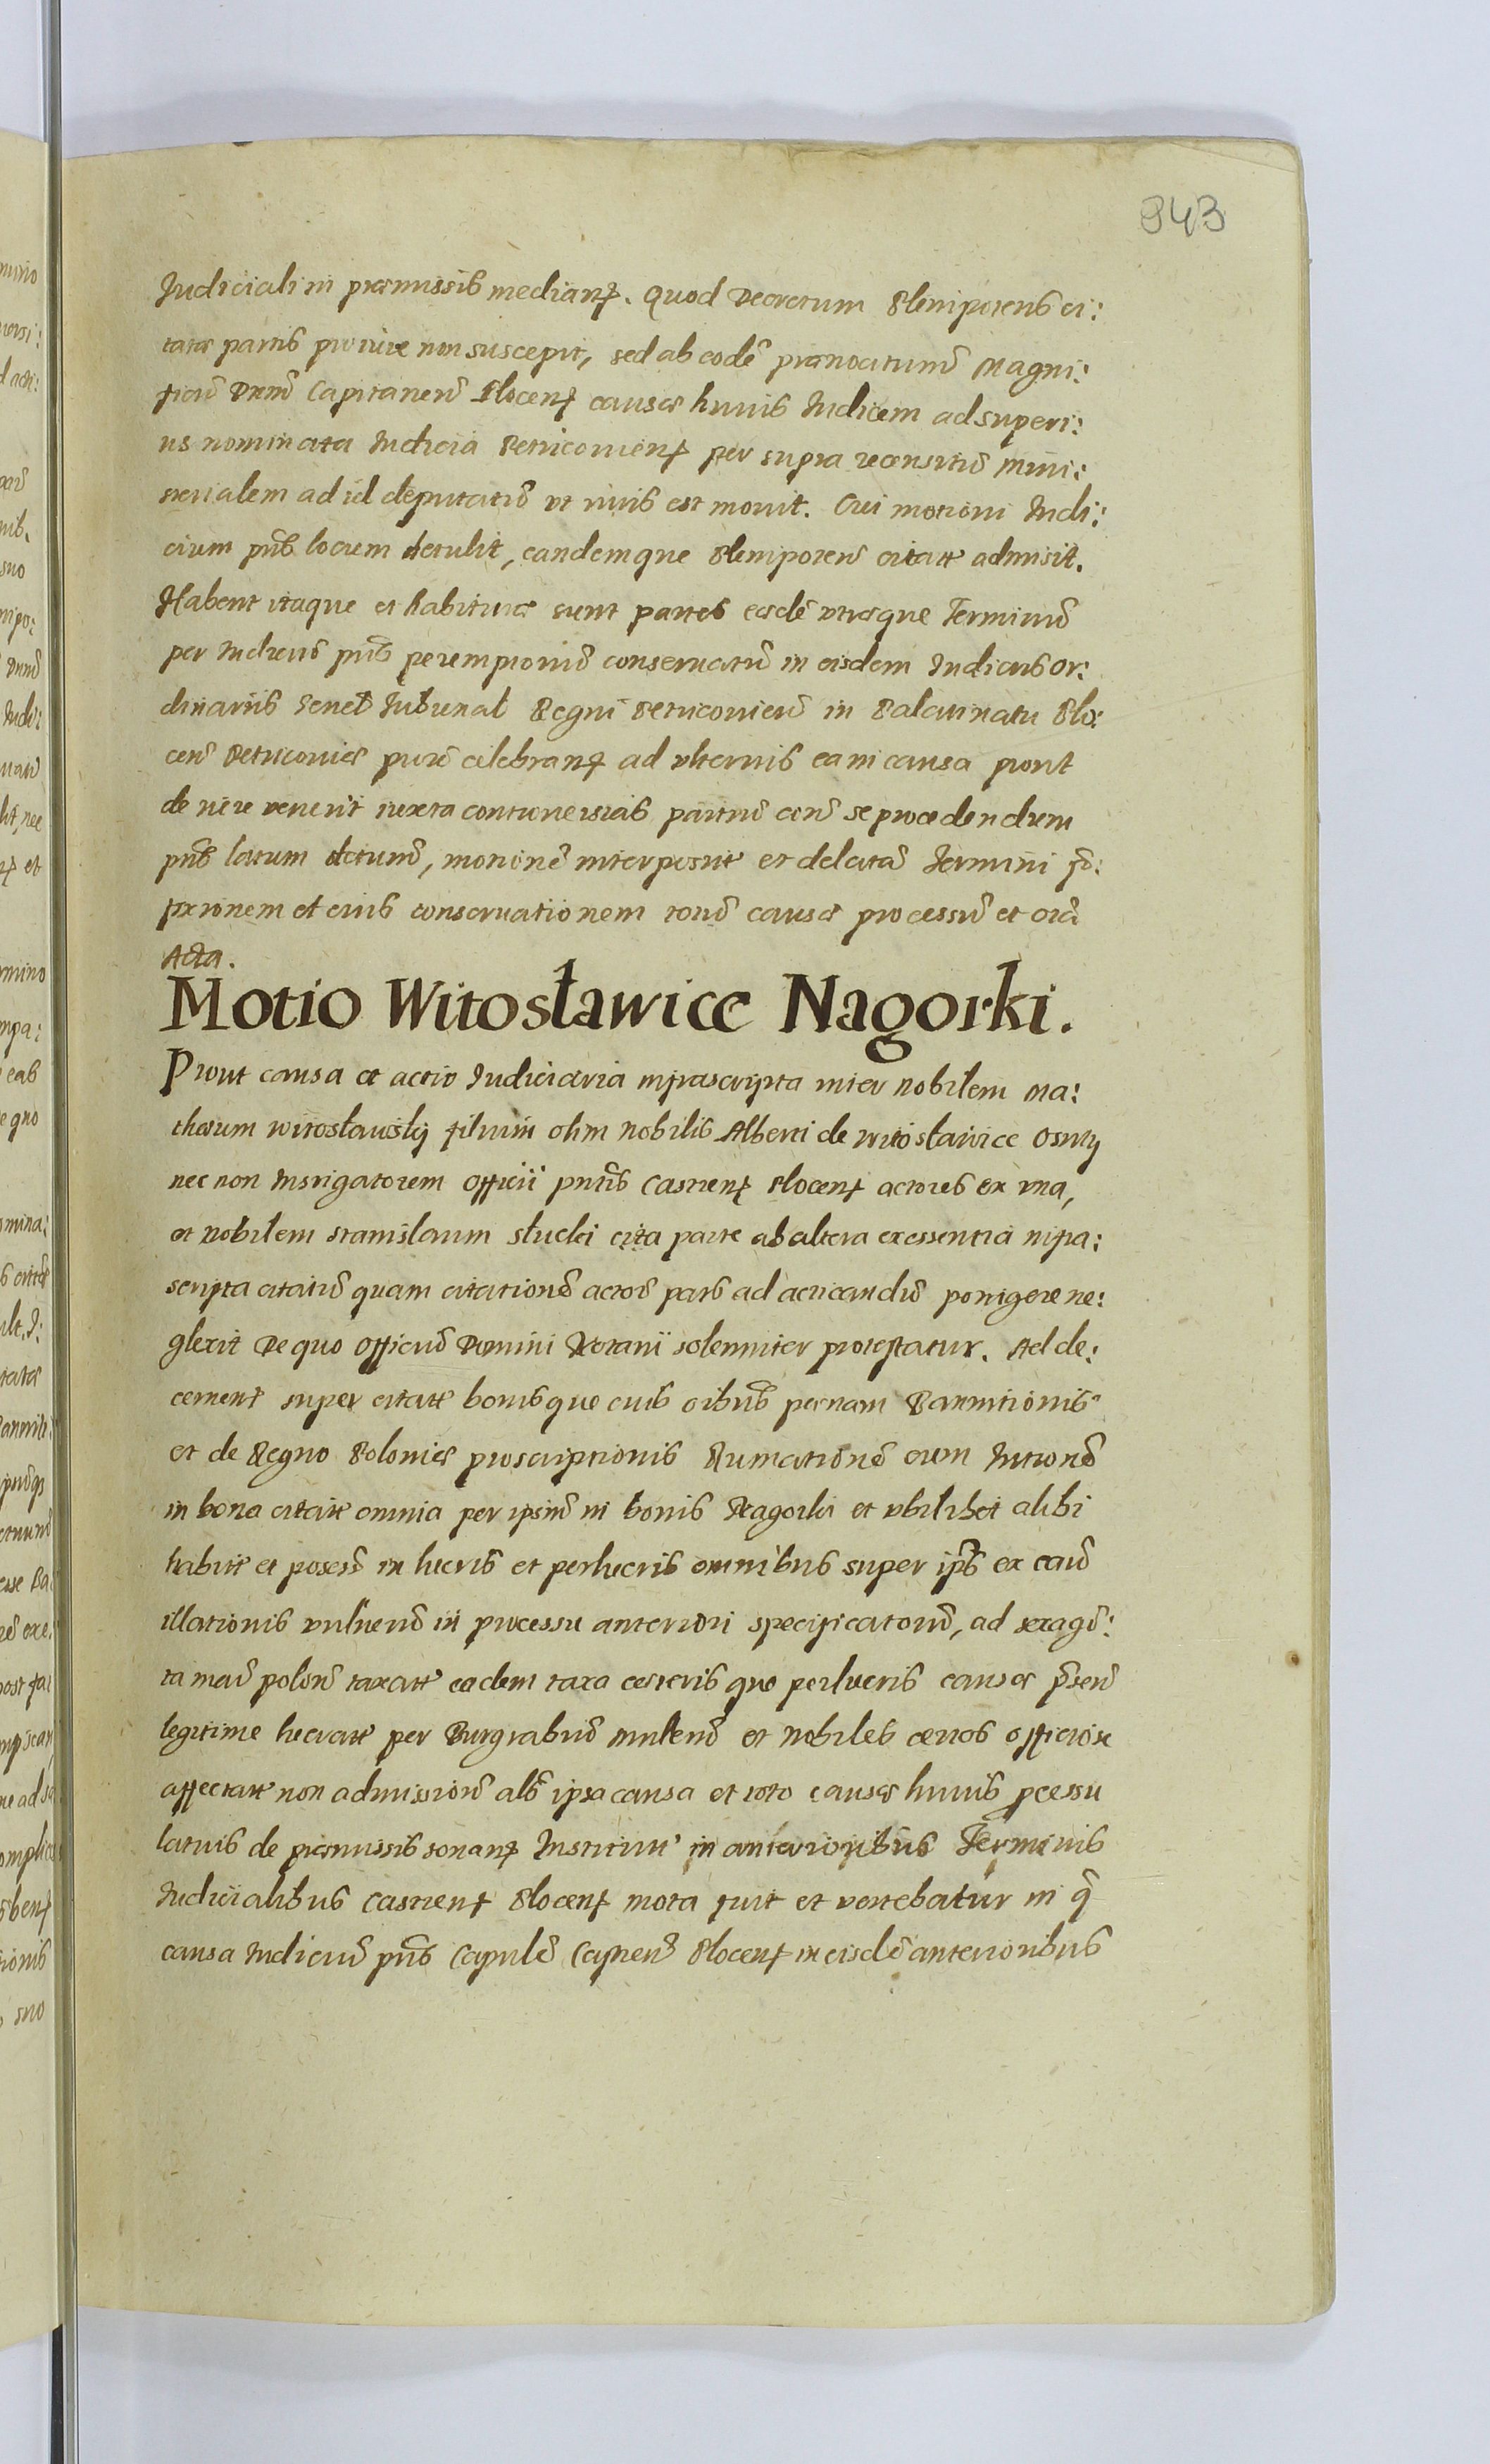 943
Iudiciali in præmissis medianȩ. Quod Decretum Plenipotens ci:
tatæ partis pro iure non suscepit, sed ab eodē prænocitatum Magni:
ficū Dnm̄ Capitaneū Plocenȩ causæ huius Iudicem ad superi:
us nominata Iudicia Petricovienȩ per supra recensitū Mini:
sterialem ad id deputatū vt iuris est movit. Cui motioni Iudi:
cium pn̄s locum detulit, eandemque Plenipoten̄ citatæ admisit.
Habent itaque et habituræ sunt partes eædē vtræque Terminū
per Iudiciū pn̄s peremptoriū conservatū in eisdem Iudiciis or:
dinariis Tribunal Regni Petricovien̄ in Palatinatu Plo:
cen̄ Petricoviæ celebranȩ ad vlterius ea in causa prout
de iure venerit iuxta controversias partiū se procedendum
pn̄s latum motionē interpositæ et delatā Termini
et eius conservationem totū causæ processū et
Acta.
Motio Witosławice Nagorki.
Prout causa et actio Iudiciaria infrascripta inter nobilem Ma:
theum Witosławsky filium olim nobilis Alberti de Witosławice
nec non Instigatorem Officii pn̄tis Castrenȩ Plocenȩ actores ex vna,
et nobilem Stanislaum parte ab altera ex essentia infra:
scripta citatū quam citationē actor̄ pars ad acticandū porrigere ne:
glexit De quo Officiū Domini Notarii solemniter protestatur. Ad de:
cernenȩ super citatæ bonisque eius oib̄us pœnam Bannitionis
et de Regno Poloniæ proscriptionis eum
in bona citatæ omnia per ipsum in bonis Nagorki et vbilibet alibi
habit et possess̄ in lucris et perlucris omnibus super ip̄s ex
illationis vulnerū in processu anteriori specificatorū, ad sexagē:
ta polon̄ taxatæ eadem taxa cæteris quo perlucris causæ
legitime lucratæ per Burgrabiū et Nobiles certos officiose
affectatæ non admission̄ als̄ ipsa causa et toto causæ huius pcessu
latius de præmissis sonanȩ Institui in anterioribus Terminis
Iudicialibus Castrenȩ Plocenȩ mota fuit et vertebatur in q̄
causa Iudiciū pn̄s Plocenȩ in eisdē anterioribus